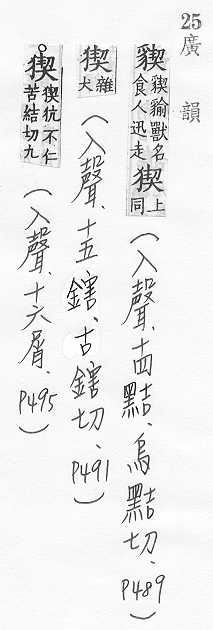 25
廣韻
猰猰貐獸名食人迅走猰上同(入聲、十四黠、烏黠切、P489)
猰雜犬(入聲、十五鎋、古鎋切、P491)
猰猰犺不仁苦結切九(入聲、十六屑、P495)